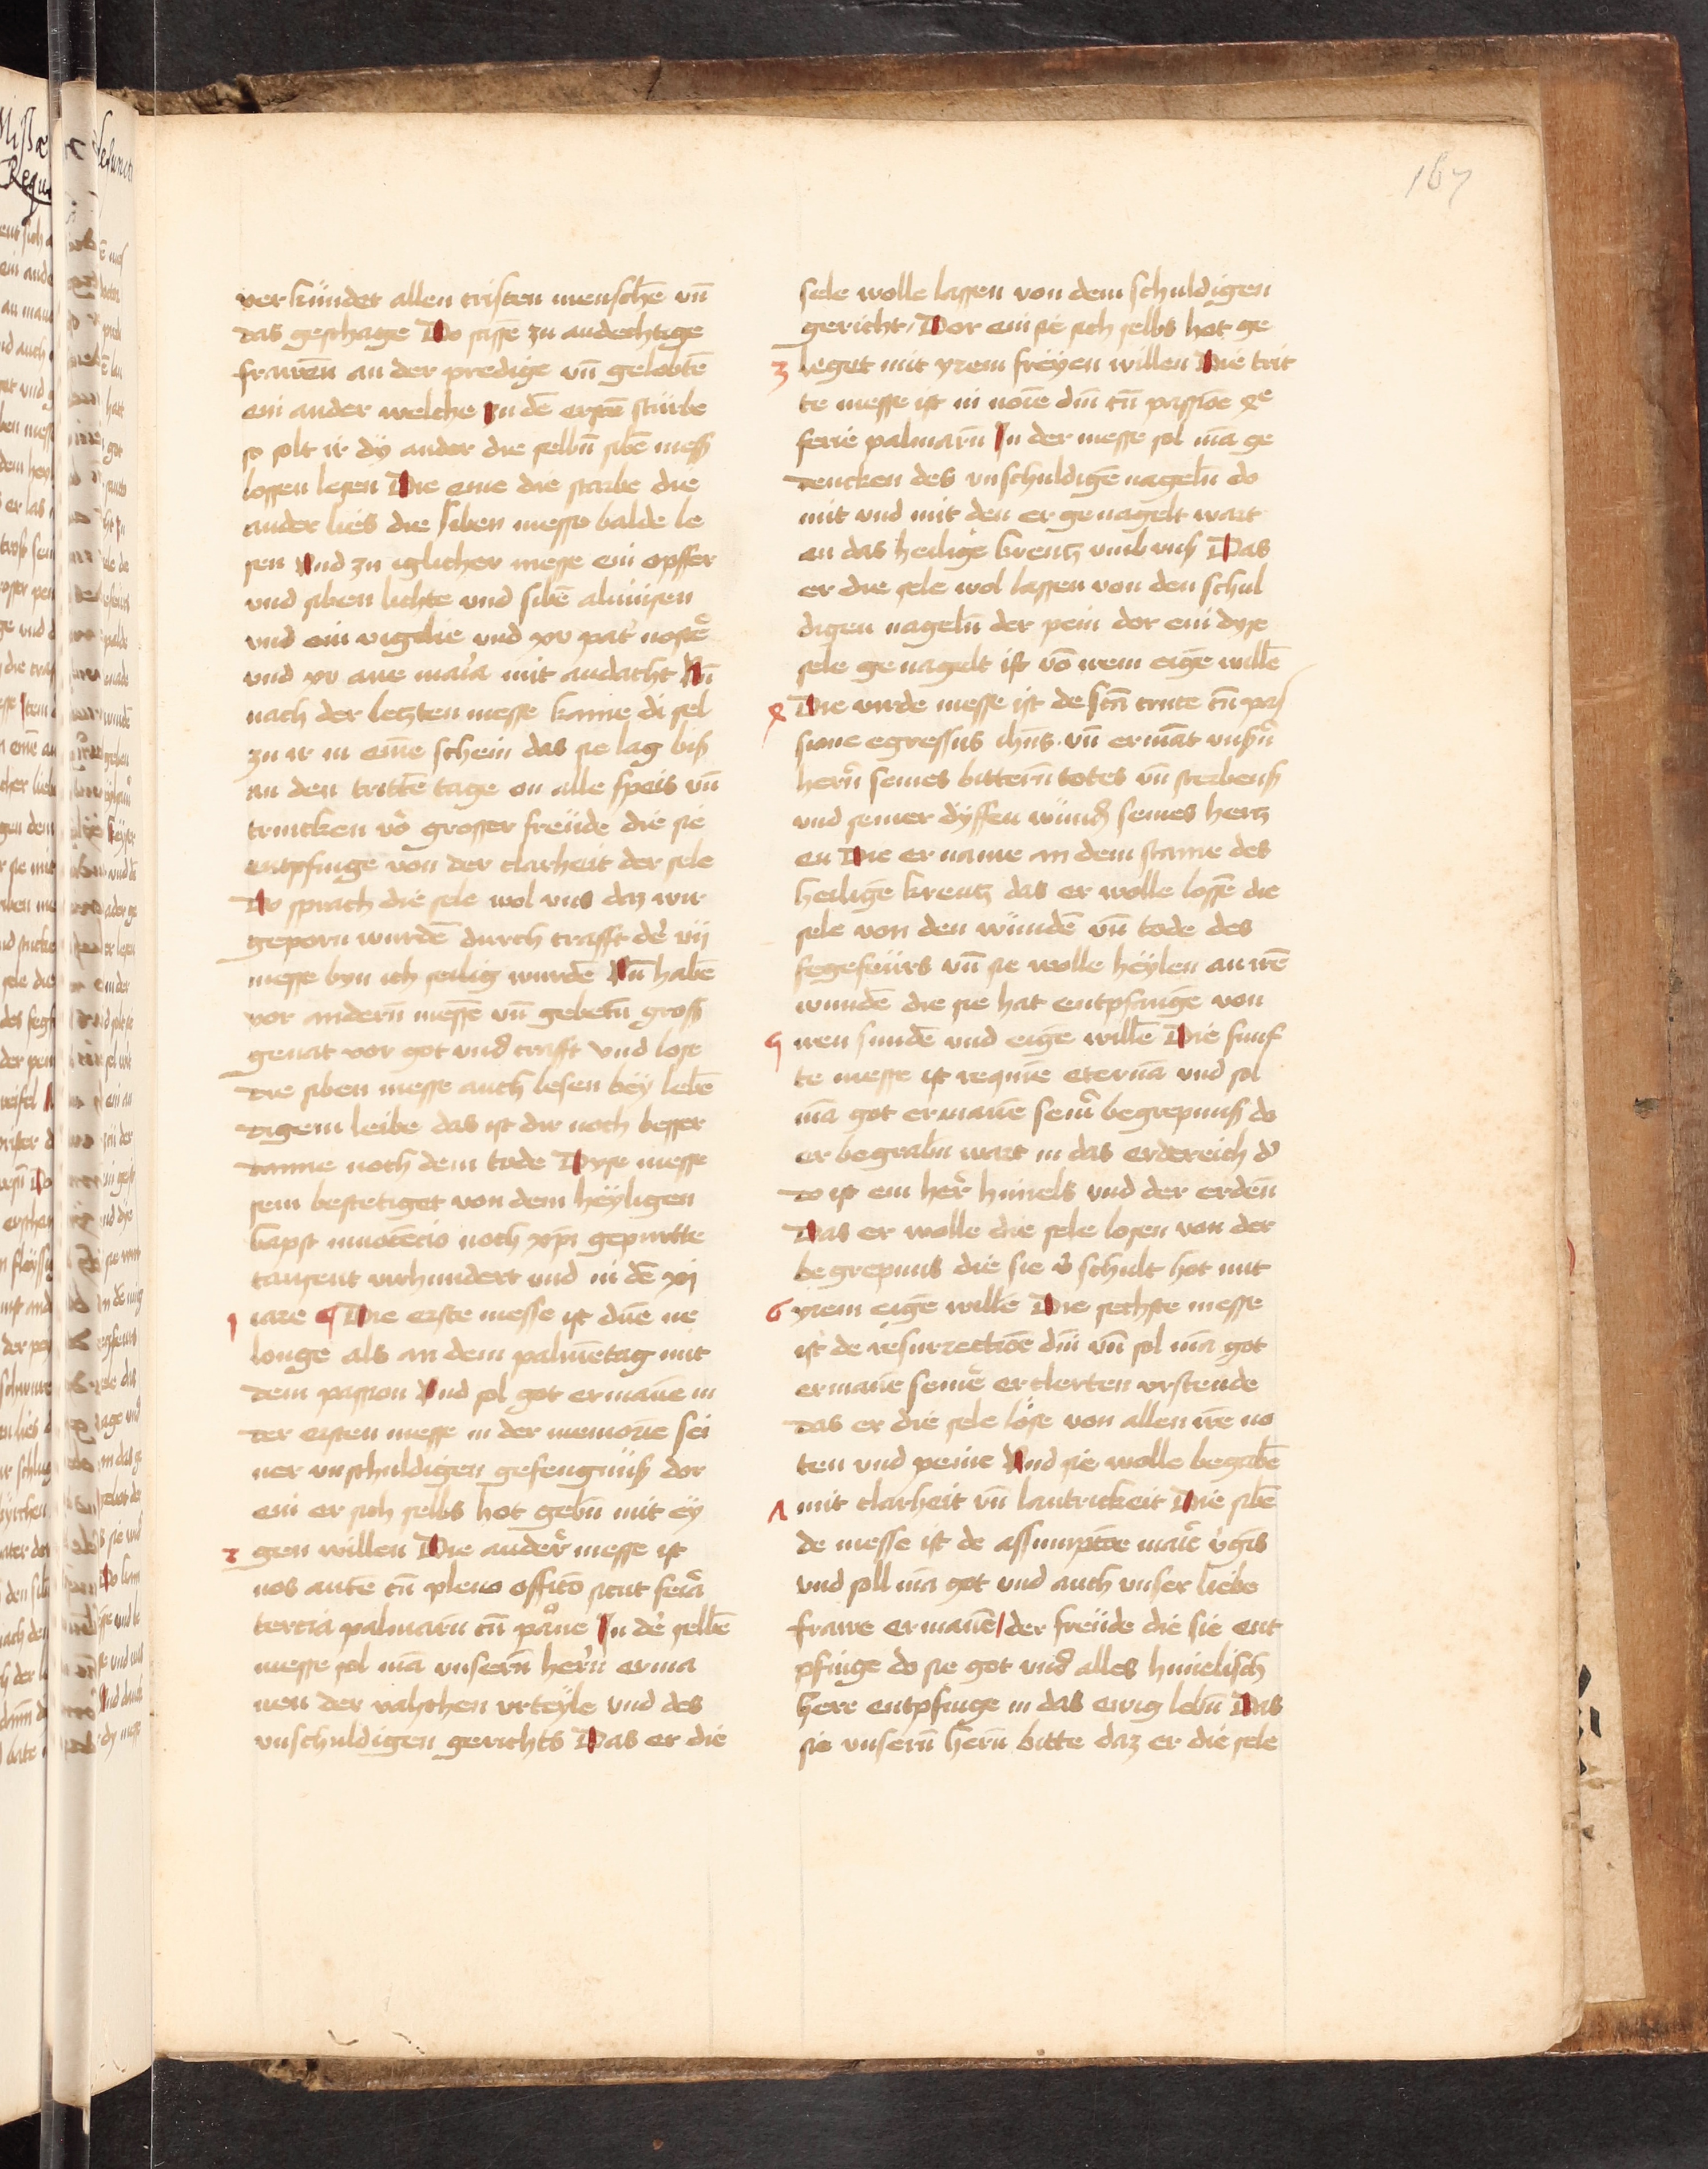 167
verkündet allen cristen mensche͂ vn͂
das geschage Do sasse͂ zu andechtige
frawen͂ an der predige vn͂ gelobte͂
ein ander welche zu de͂ ersten͂ stürbe
so solt ir dy ander die selbn͂ sibe͂ mess
lossen lesen Die eine die starbe die
ander lies die siben messe balde le
sen Vnd zu iglicher messe ein opffer
vnd siben lichte vnd sibe͂ almüsen
vnd ein vigilie vnd xv pat' noste͂r
vnd xv aue maria mit andacht Vn͂
nach der letzten messe kame di sel
zu ir in eine͂ schein das sie lag biß
an den tritte͂ tage on alle speis vn͂
trincken vo͂ grosser freüde die sie
entpfinge von der clarheit der sele
Do sprach die sele wol vns daz wir
geporn wurde͂ durch crafft de' vij
messe byn ich selig wurde͂ Vn͂ habe͂
vor andern͂ messe͂ vn͂ gebetn͂ groß
genat vor got vnd crafft vnd lose
die siben messe auch lesen bey lebe͂
digem leibe das ist dir noch besser
danne noch dem tode Dyse messe
sein bestetiget von dem heyligen
bapst innoce͂cio noch xp͂i gepurtte
tausent virhundert vnd in de͂ xj
iare ¶ Die erste messe ist dn͂e ne
1
longe als an dem palme͂tag mit
dem passion Vnd sol got ermane͂ in
der ersten messe in der memorie͂ sei
ner vnschuldigen gefengniß dor
ein er sich selbs hot gebn͂ mit ey
gen willen Die ander͂ messe ist
2
nos aute͂ cu͂ pleno offico͂ sicut feri͂a
tercia palmaru͂ cu͂ passione In de' selbe͂
messe sol ma͂ vnsern͂ hern͂ erma
nen der valschen vrteyle vnd des
vnschuldigen gerichts Das er die
sele wolle lassen von dem schuldigen
gericht / Dor ein sie sich selbs hat ge
leget mit yrem freyen willen Die trit
3
te messe ist in no͂ie dn͂i cu͂ passio͂e 4e
ferie palmaru͂ In der messe sol ma͂ ge
dencken des vnschuldige͂ nageln͂ do
mit vnd mit den er genagelt wart
an das heilige kreutz vmb vnß Das
er die sele wol lassen von den schul
digen nageln͂ der pein dor ein dyse
sele genagelt ist vo͂ irem eige͂ wille͂
Die virde messe ist de sca͂ cruce cu͂ pas
4
sione egressus ih͂us vn͂ erma͂t vnser͂n
hern͂ seines bittern͂ totes vn͂ sterbens
vnd seiner dyffen wünd seines hertz
en Die er name an dem stame des
heilige͂ kreutz das er wolle losse͂ die
sele von den wunde͂ vn͂ tode des
fegefeürs vn͂ sie wolle heylen an ire͂
wunde͂ die sie hat entpfange͂ von
iren sunde͂ vnd eige͂ wille͂ Die funf
5
te messe ist requie͂ eterna͂ vnd sol
ma͂ got ermane͂ sein͂r begrepniß do
er begrabn͂ wart in das erdereich d'
do ist ein her͂ himels vnd der erden͂
Das er wolle die sele losen von der
begrepnus die sie v'schult hot mit
yrem eige͂ wille͂ Die sechste messe
6
ist de resurrectio͂e dn͂i vn͂ sol ma͂ got
ermane͂ seine͂r erclerten vrstende
das er die sele löse von allen ire͂ no
ten vnd peine Vnd sie wolle begabe͂
mit clarheit vn͂ lautrickeit Die sibe͂
7
de messe ist de assumpto͂e mari͂e v'gi͂s
vnd soll ma͂ got vnd auch vnser liebe
frawe ermane͂ / der freüde die sie ent
pfinge do sie got vnd alles himelisch
here entpfinge in das ewig lebn͂ Das
sie vnsern͂ hern͂ bitte daz er die sele